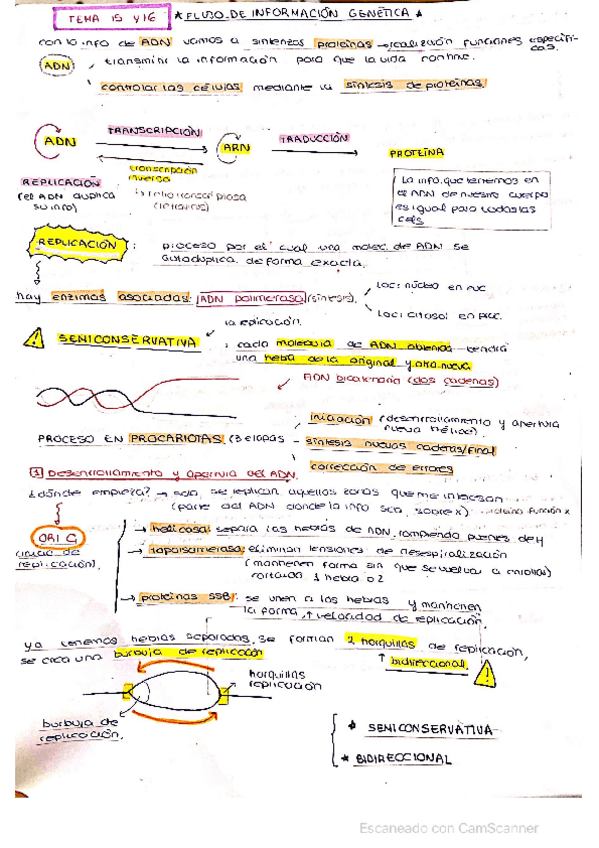 TEMA 15 y 16 * FLUJO DE INFORMACIÓN GENÉTICA *
con la info de ADN vamos a sintetizar proteínas → realización funciones específicas.
ADN transmitir la información para que la vida continue.
controlar las células mediante la síntesis de proteínas.
ADN TRANSCRIPCIÓN ARN TRADUCCIÓN PROTEÍNA
transcripción inversa
REPLICACIÓN
(el ADN duplica su info)
(retrovirus)
La info que tenemos en
el ADN de nuestro cuerpo
es igual para todas las
cels
REPLICACIÓN : proceso por el cual una molec. de ADN se
autoduplica de forma exacta.
hay enzimas asociadas: ADN polimerasa (síntesis).
Loc: núcleo en euc
Loc: citosol en proc.
la replicación.
SEMICONSERVATIVA : cada molecula de ADN obtenida tendrá
una hebra de la original y otra nueva
ADN bicatenaria (dos cadenas)
PROCESO EN PROCARIOTAS (3 etapas
iniciación (desenrollamiento y apertura
nueva hélice)
síntesis nuevas cadenas/final
corrección de errores
1 Desenrollamiento y apertura del ADN.
¿dónde empieza? → solo se replican aquellas zonas que me interesan
(parte del ADN donde la info sea sobre x) función x
ORI C
replicación).
→ helicasa: separa las hebras de ADN, rompiendo puenes de H
→ topoisomerasa: eliminan tensiones de desespiralización
(mantienen forma sin que se vuelva a enrollar)
cortando 1 hebra o 2
→ proteínas SSB: se unen a las hebras y mantienen
la forma, ↑ velocidad de replicación.
ya tenemos hebras separadas, se forman 2 horquillas de replicación,
se crea una burbuja de replicación
↑ bidireccional
horquillas
replicación
burbuja de
replicación.
* SEMICONSERVATIVA
* BIDIRECCIONAL
Escaneado con CamScanner